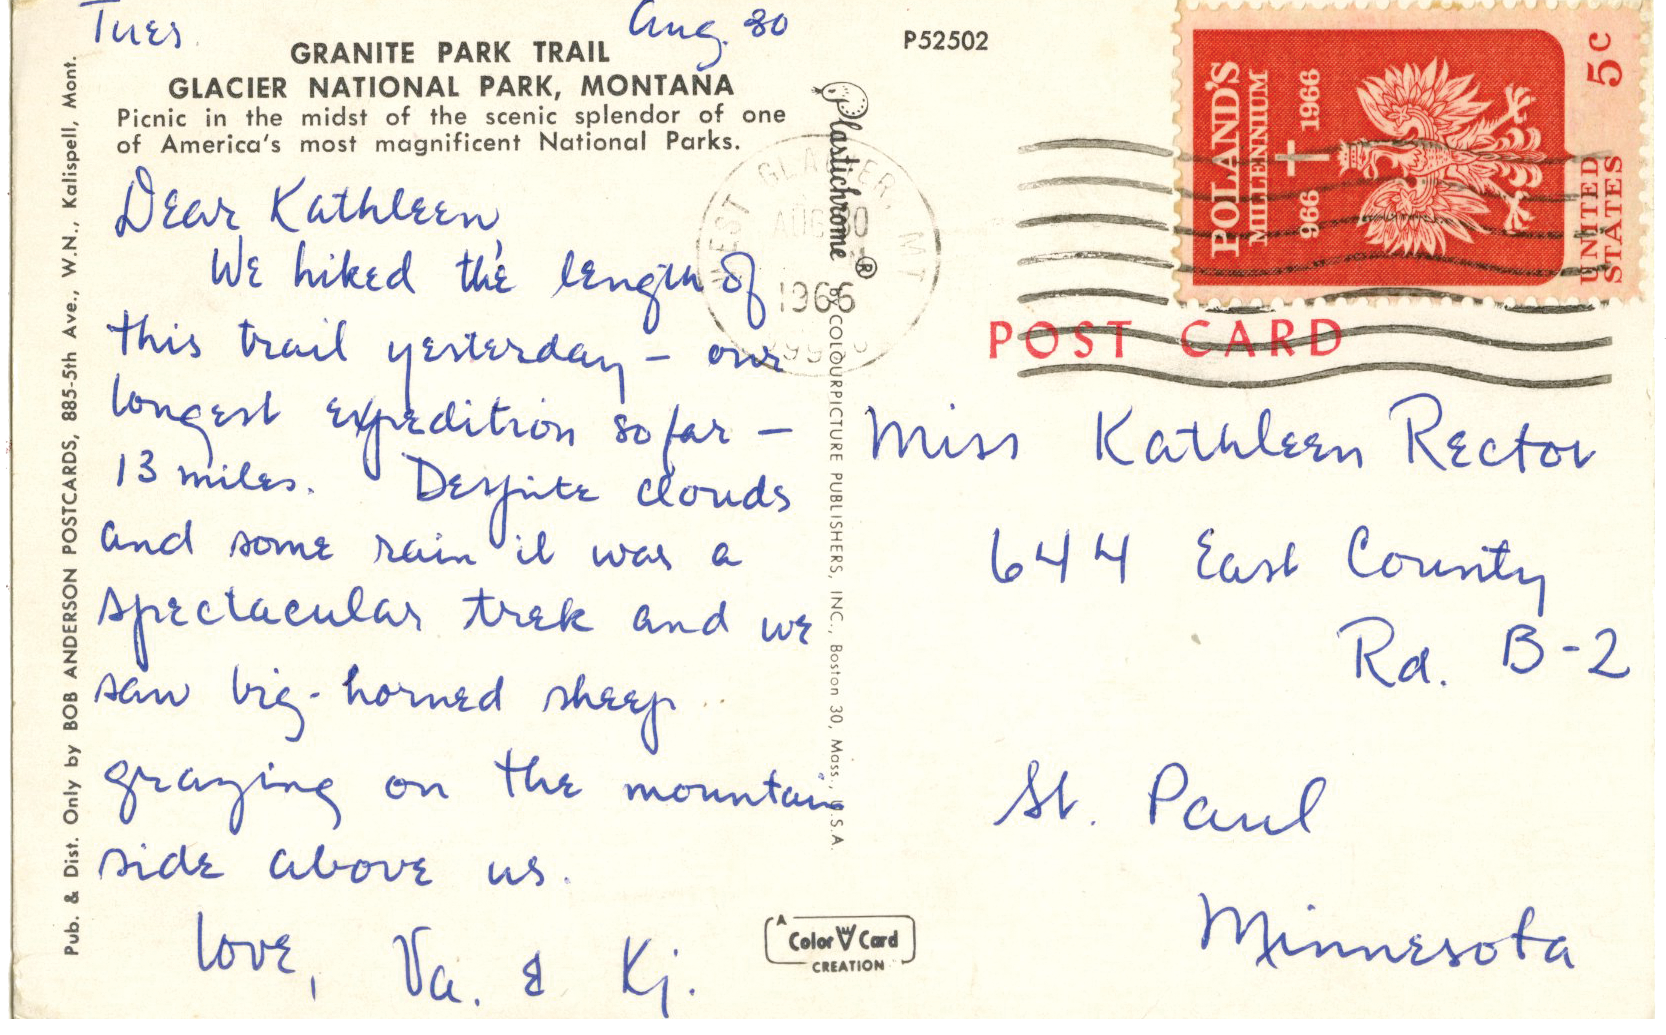 Tues. Aug. 30
GRANITE PARK TRAIL
GLACIER NATIONAL PARK, MONTANA
Picnic in the midst of the scenic splendor of one
of America's most magnificent National Parks.
Dear Kathleen,
We hiked the length of
this trail yesterday – our
longest expedition so far –
13 miles. Despite clouds
and some rain it was a
spectacular trek and we
saw big-horned sheep
grazing on the mountain
side above us.
Love, Va. & Kj.
Pub. & Dist. Only by BOB ANDERSON POSTCARDS, 885-5th Ave., W.N., Kalispell, Mont.
Plastichrome ® by COLOURPICTURE PUBLISHERS, INC., Boston 30, Mass., U.S.A.
A
Color Card
CREATION
P52502
WEST GLACIER, MT
AUG 30
1966
POLAND'S
MILLENNIUM
966 1966
UNITED
STATES 5c
POST CARD
Miss Kathleen Rector
644 East County
Rd. B-2
St. Paul
Minnesota